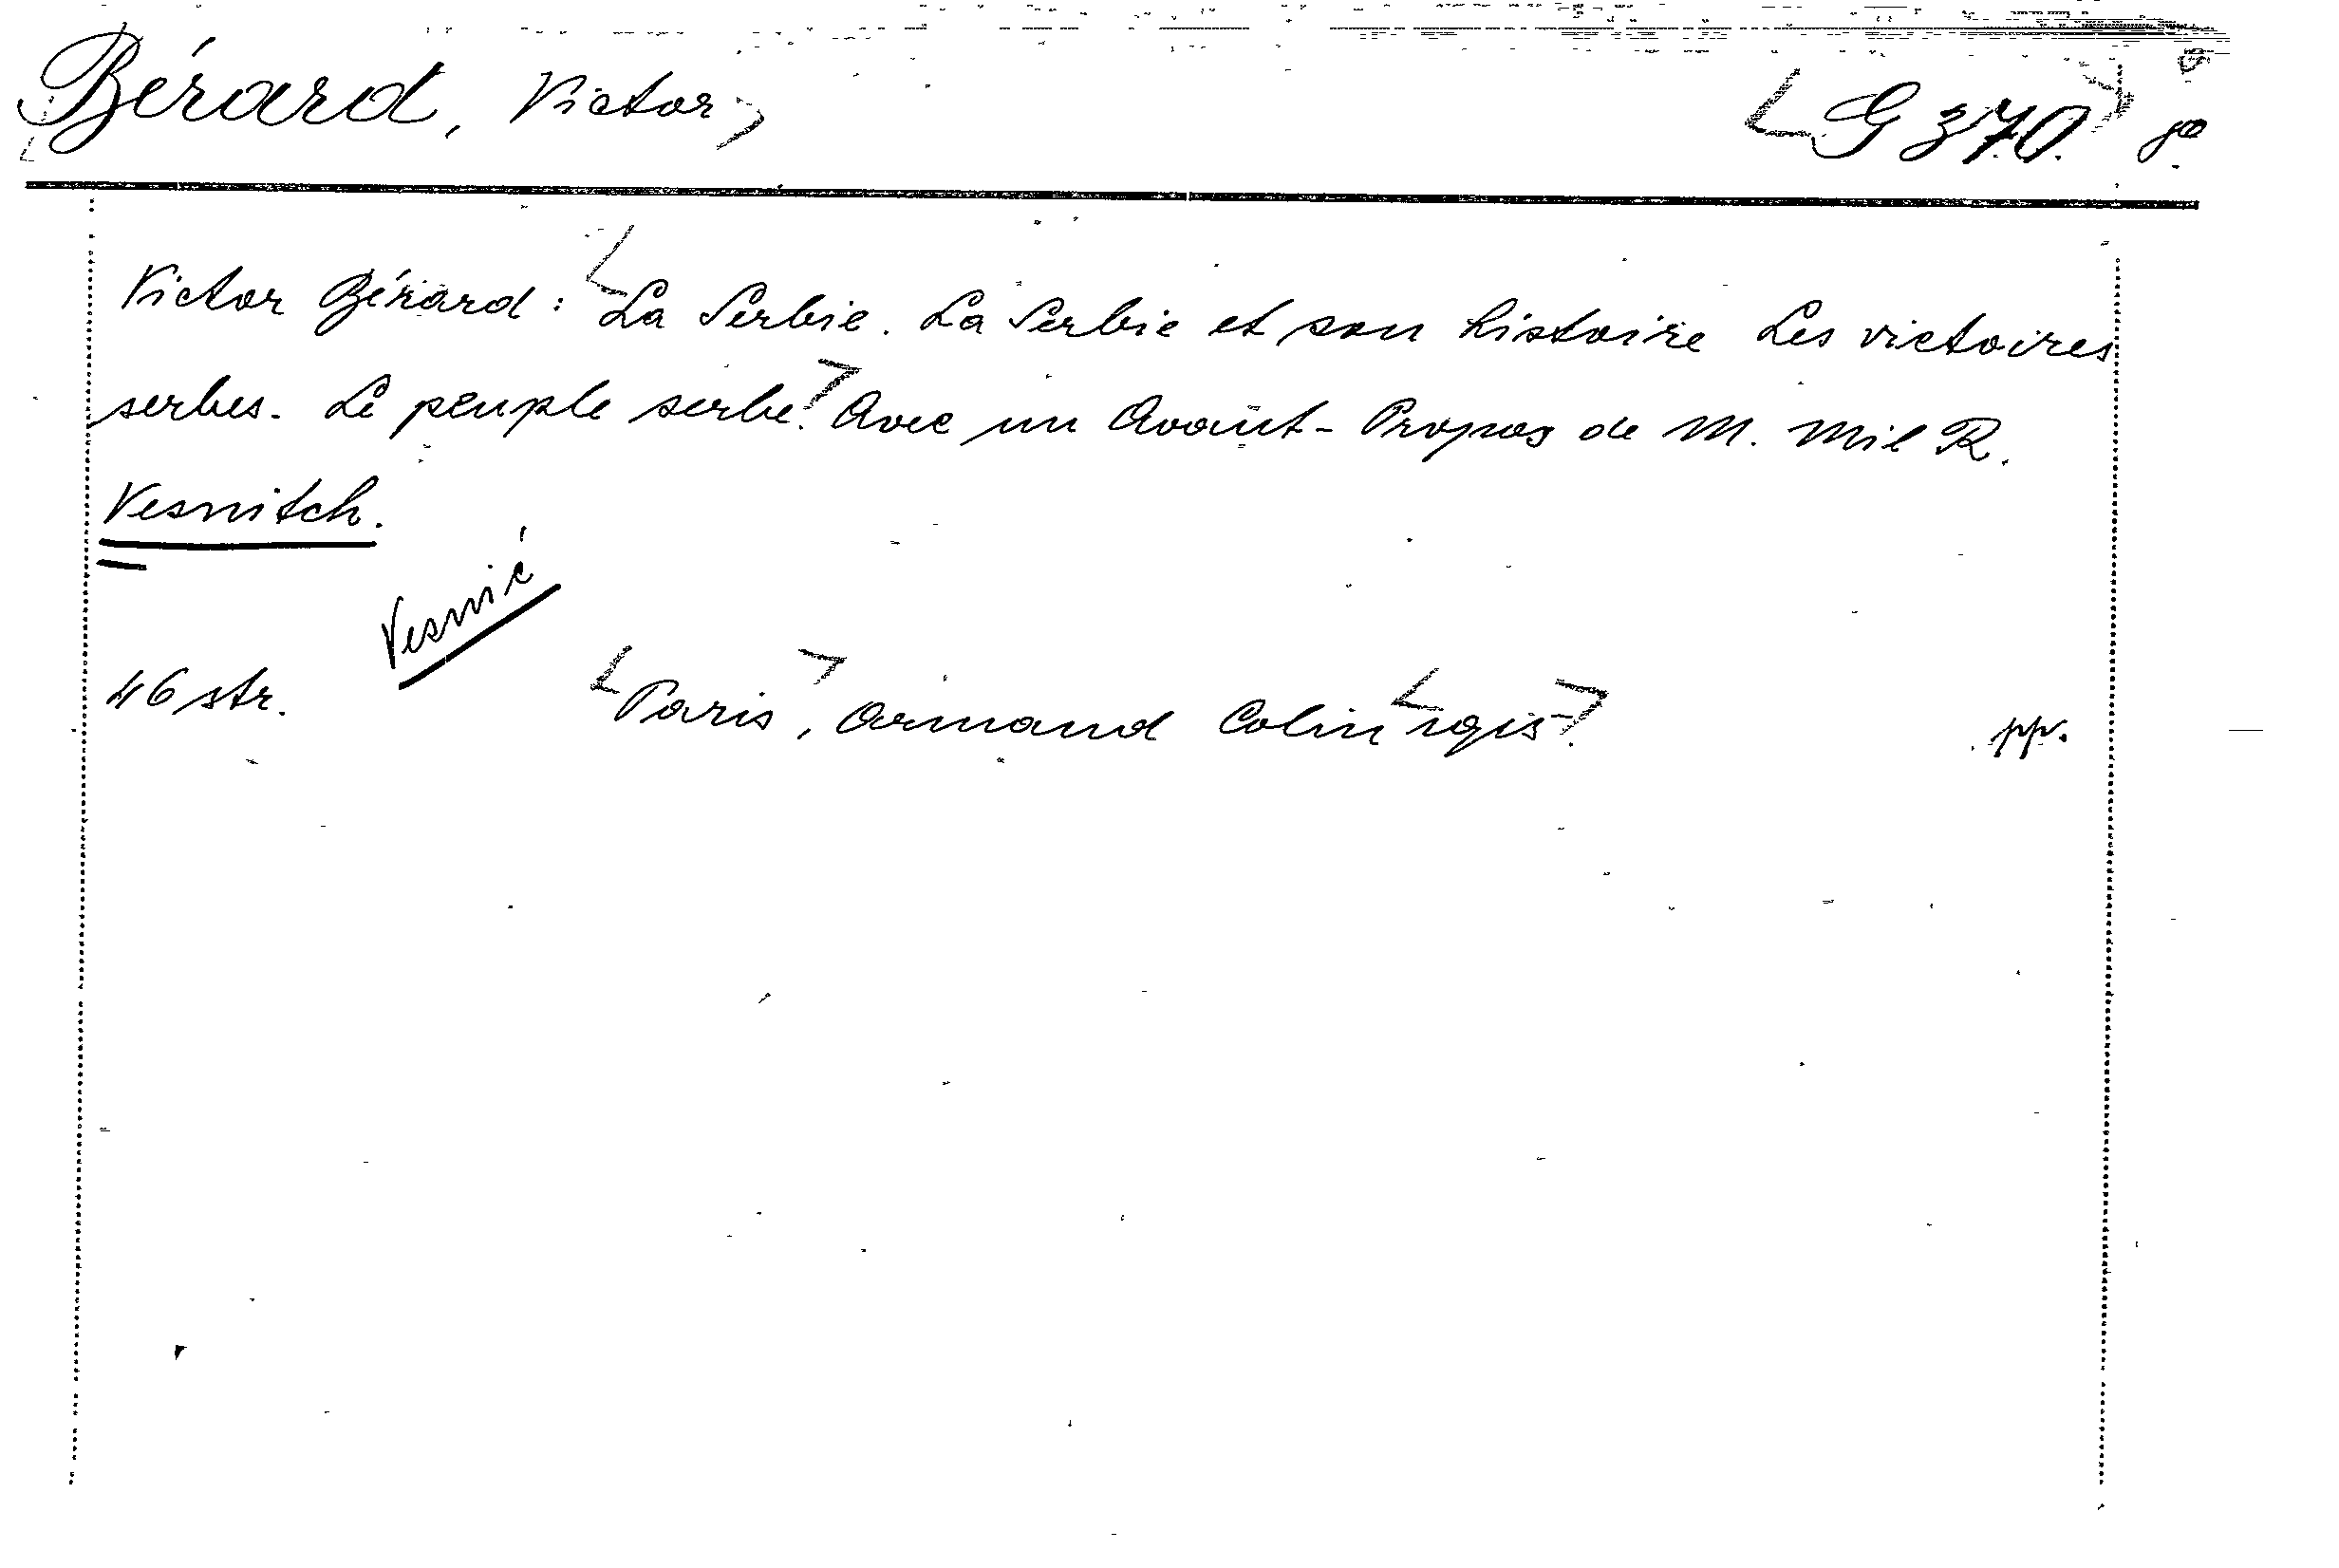 Bérard, Victor
G 370. 8º
Victor Bérard: La Serbie. La Serbie et son histoire Les victoires
serbes. Le peuple serbe. Avec un Avant-Propos de M. Mil R.
Vesnitch.
Vesnić
46 str. Paris, Armand Colin 1915. pp.